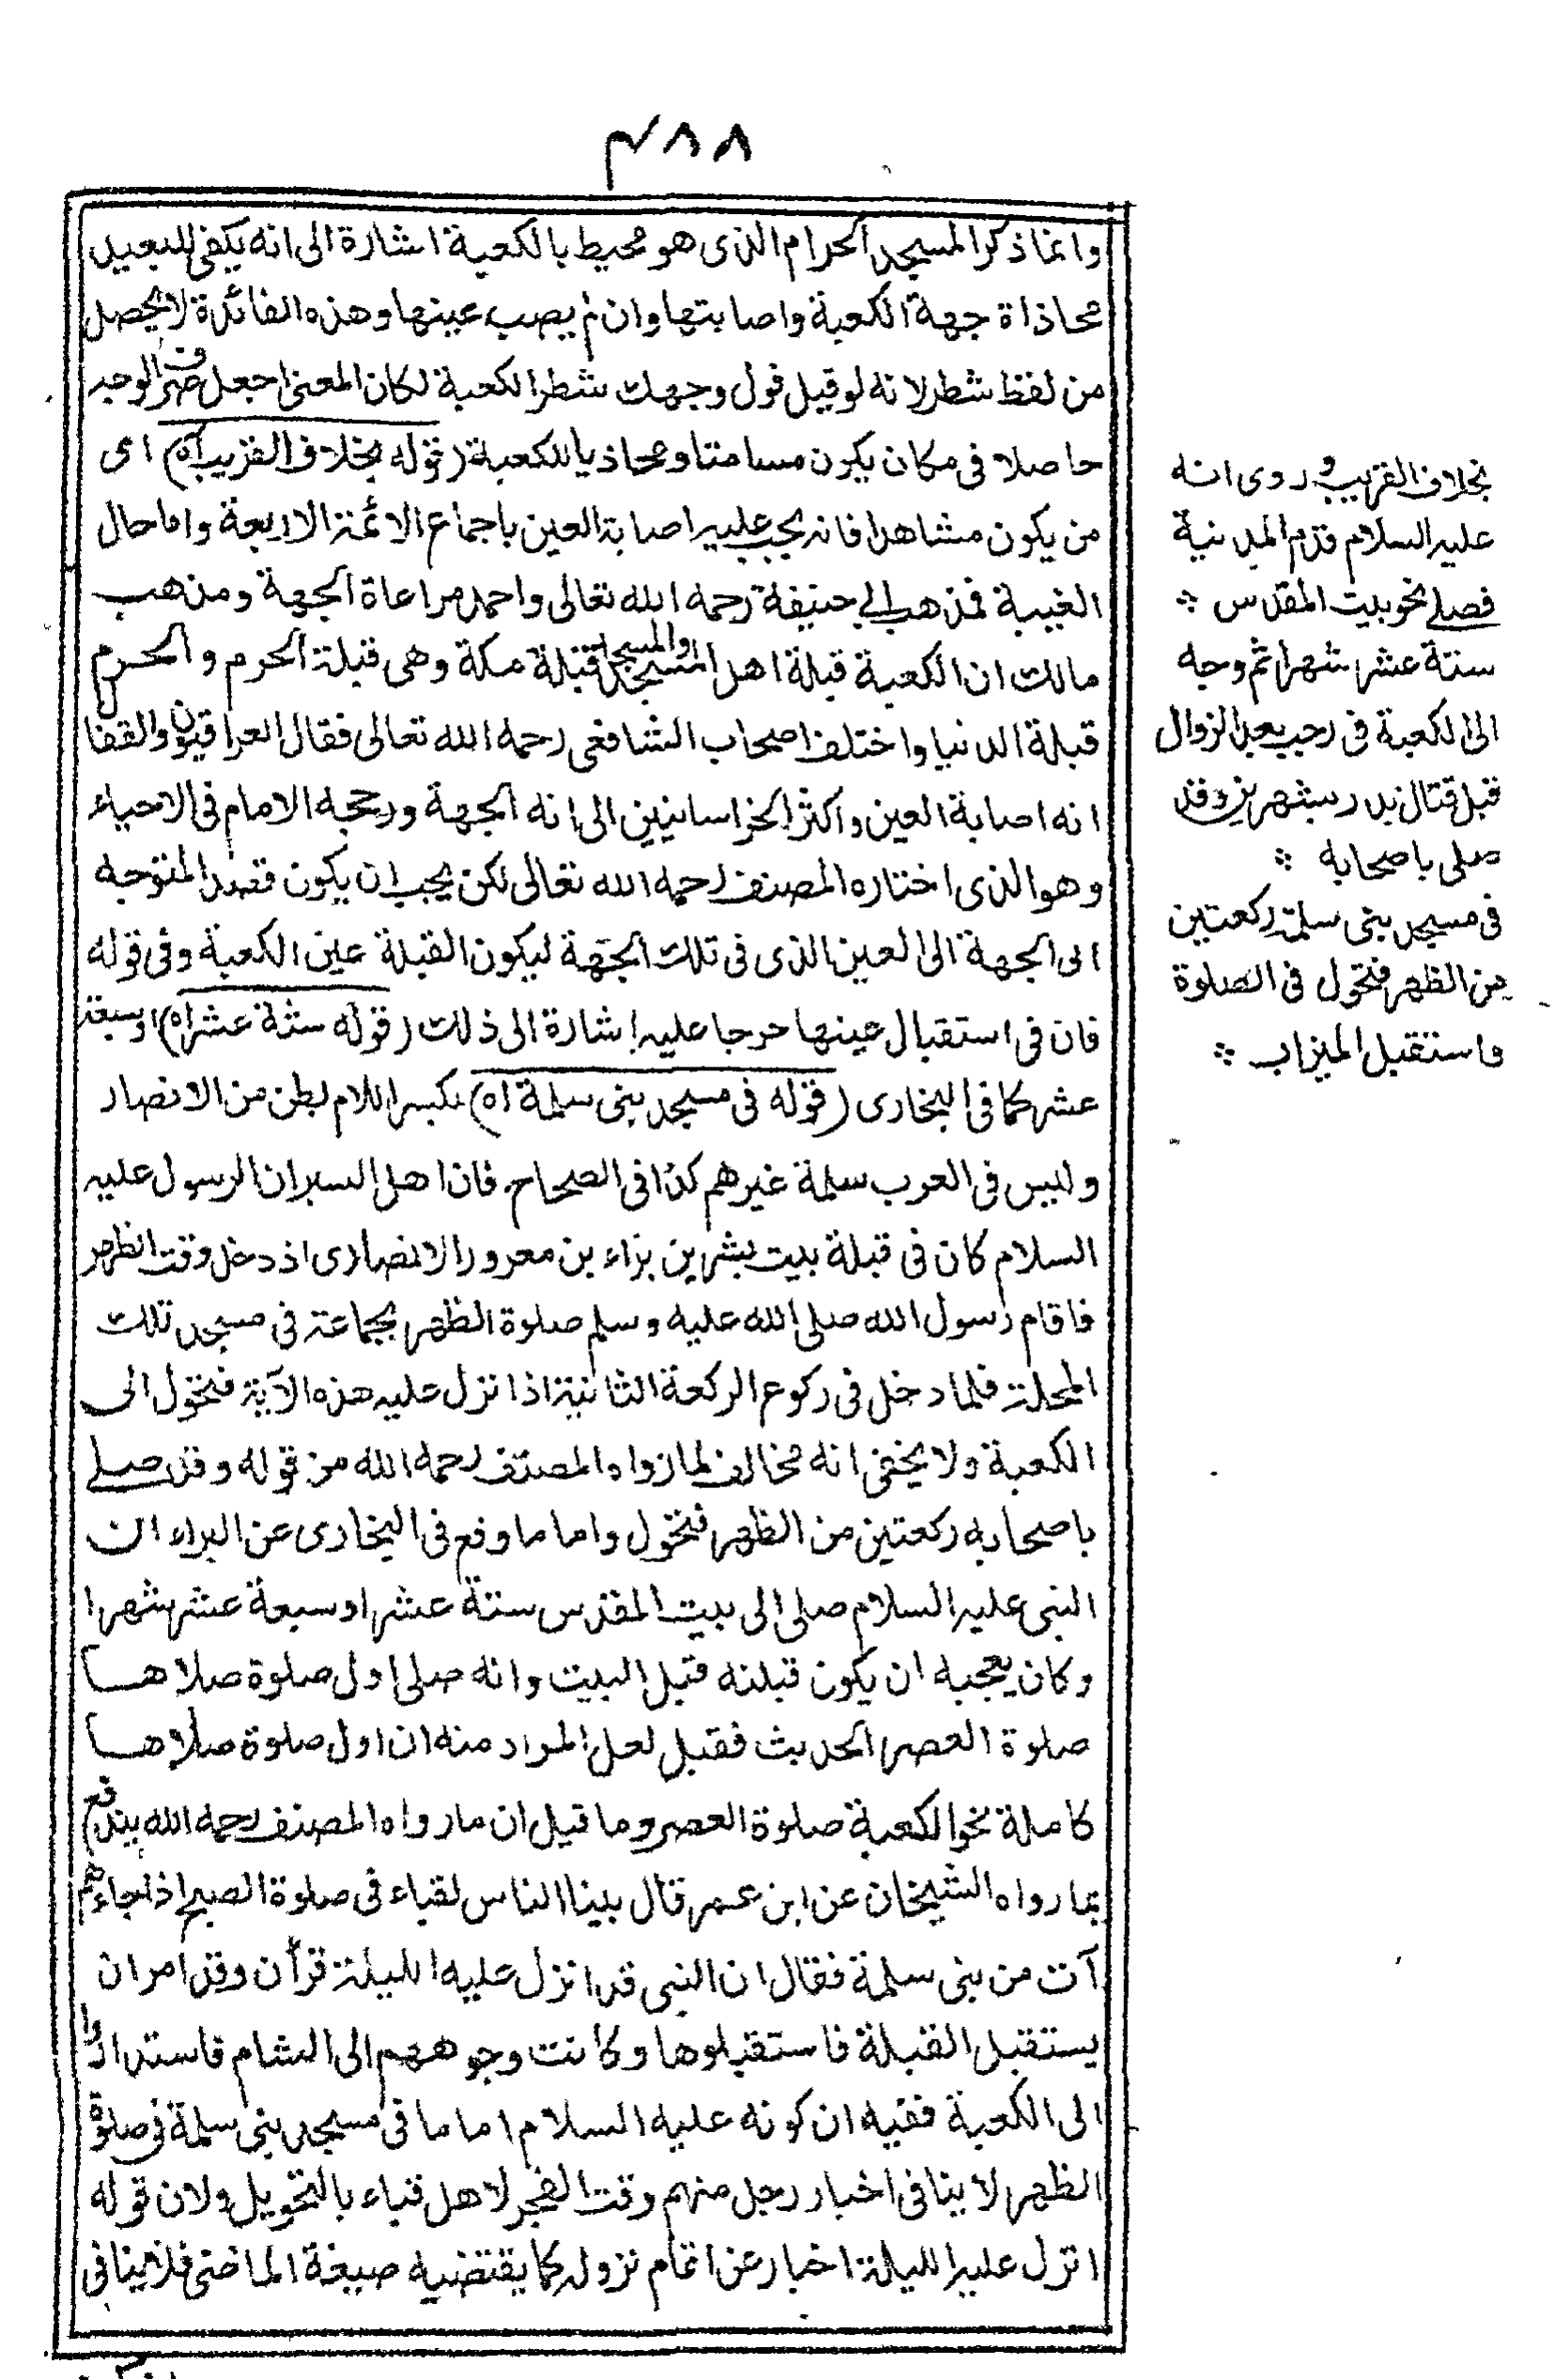 ٣٨٨
وانما ذكر المسجد الحرام الذى هو محيط بالكعبة اشارة الى انه يكفى للبعيد
محاذاة جهة الكعبة واصابتها وان لم يصب عينها وهذه الفائدة لا يحصل
من لفظ شطر لانه لو قيل فول وجهك شطر الكعبة لكان المعنى اجعل صرف الوجه
حاصلا فى مكان يكون مسامتا ومحاذيا للكعبة (قوله بخلاف القريب اه) اى
من يكون مشاهدا فانه يجب عليه اصابة العين باجماع الائمة الاربعة واما حال
الغيبة فمذهب ابى حنيفة رحمه الله تعالى واحمد مراعاة الجهة ومذهب
مالك ان الكعبة قبلة اهل المسجد والمسجد قبلة مكة وهى قبلة الحرم والحرم
قبلة الدنيا واختلف اصحاب الشافعى رحمه الله تعالى فقال العراقيون والقفال
انه اصابة العين واكثر الخراسانيين الى انه الجهة ورجحه الامام فى الاحياء
وهو الذى اختاره المصنف رحمه الله تعالى لكن يجب ان يكون قصد المتوجه
الى الجهة الى العين الذى فى تلك الجهة ليكون القبلة عين الكعبة وفى قوله
فان فى استقبال عينها حرجا عليه اشارة الى ذلك (قوله ستة عشر اه) او سبعة
عشر كما فى البخارى (قوله فى مسجد بنى سلمة اه) بكسر اللام بطن من الانصار
وليس فى العرب سلمة غيرهم كذا فى الصحاح فان اهل السير ان الرسول عليه
السلام كان فى قبلة بيت بشر بن براء بن معرور الانصارى اذ دخل وقت الظهر
فاقام رسول الله صلى الله عليه وسلم صلوة الظهر بجماعة فى مسجد تلك
المحلة فلما دخل فى ركوع الركعة الثانية اذا نزل عليه هذه الآية فتحول الى
الكعبة ولا يخفى انه مخالف لما رواه المصنف رحمه الله من قوله وقد صلى
باصحابه ركعتين من الظهر فتحول واما ما وقع فى البخارى عن البراء ان
النبى عليه السلام صلى الى بيت المقدس ستة عشر او سبعة عشر شهرا
وكان يعجبه ان يكون قبلته قبل البيت وانه صلى اول صلوة صلاها
صلوة العصر الحديث فقيل لعل المراد منه ان اول صلوة صلاها
كاملة نحو الكعبة صلوة العصر وما قيل ان ما رواه المصنف رحمه الله يندفع
بما رواه الشيخان عن ابن عمر قال بينا الناس لقباء فى صلوة الصبح اذ جاءهم
آت من بنى سلمة فقال ان النبى قد انزل عليه الليلة قرآن وقد امر ان
يستقبل القبلة فاستقبلوها وكانت وجوههم الى الشام فاستداروا
الى الكعبة ففيه ان كونه عليه السلام اماما فى مسجد بنى سلمة فى صلوة
الظهر لا ينافى اخبار رجل منهم وقت الفجر لاهل قباء بالتحويل ولان قوله
انزل عليه الليلة اخبار عن اتمام نزوله كما يقتضيه صيغة الماضى فلا ينافى
بخلاف القريب وروى انه
عليه السلام قدم المدينة
فصلى نحو بيت المقدس
ستة عشر شهرا ثم وجه
الى الكعبة فى رجب بعد الزوال
قبل قتال بدر بشهرين وقد
صلى باصحابه
فى مسجد بنى سلمة ركعتين
من الظهر فتحول فى الصلوة
واستقبل الميزاب